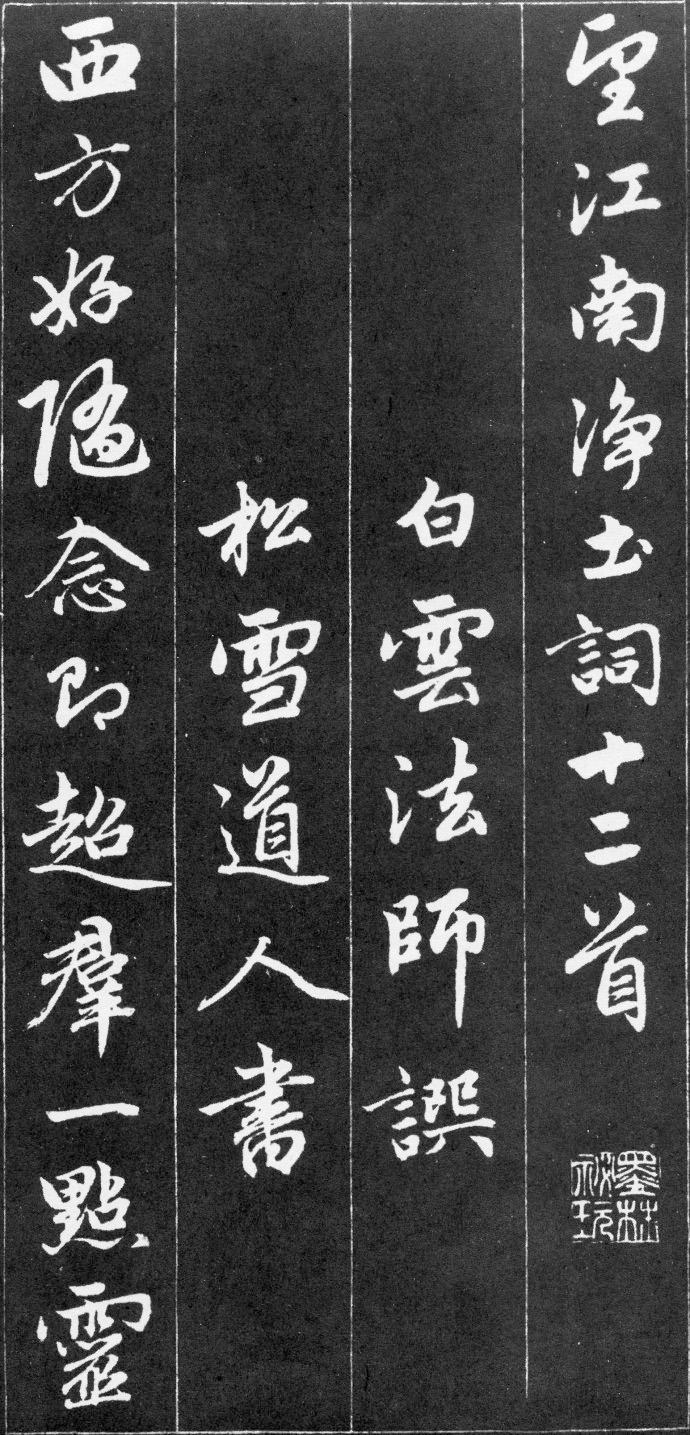 望江南淨土詞十二首
墨林
祕玩
白雲法師譔
松雪道人書
西方好隨念即超羣一點靈